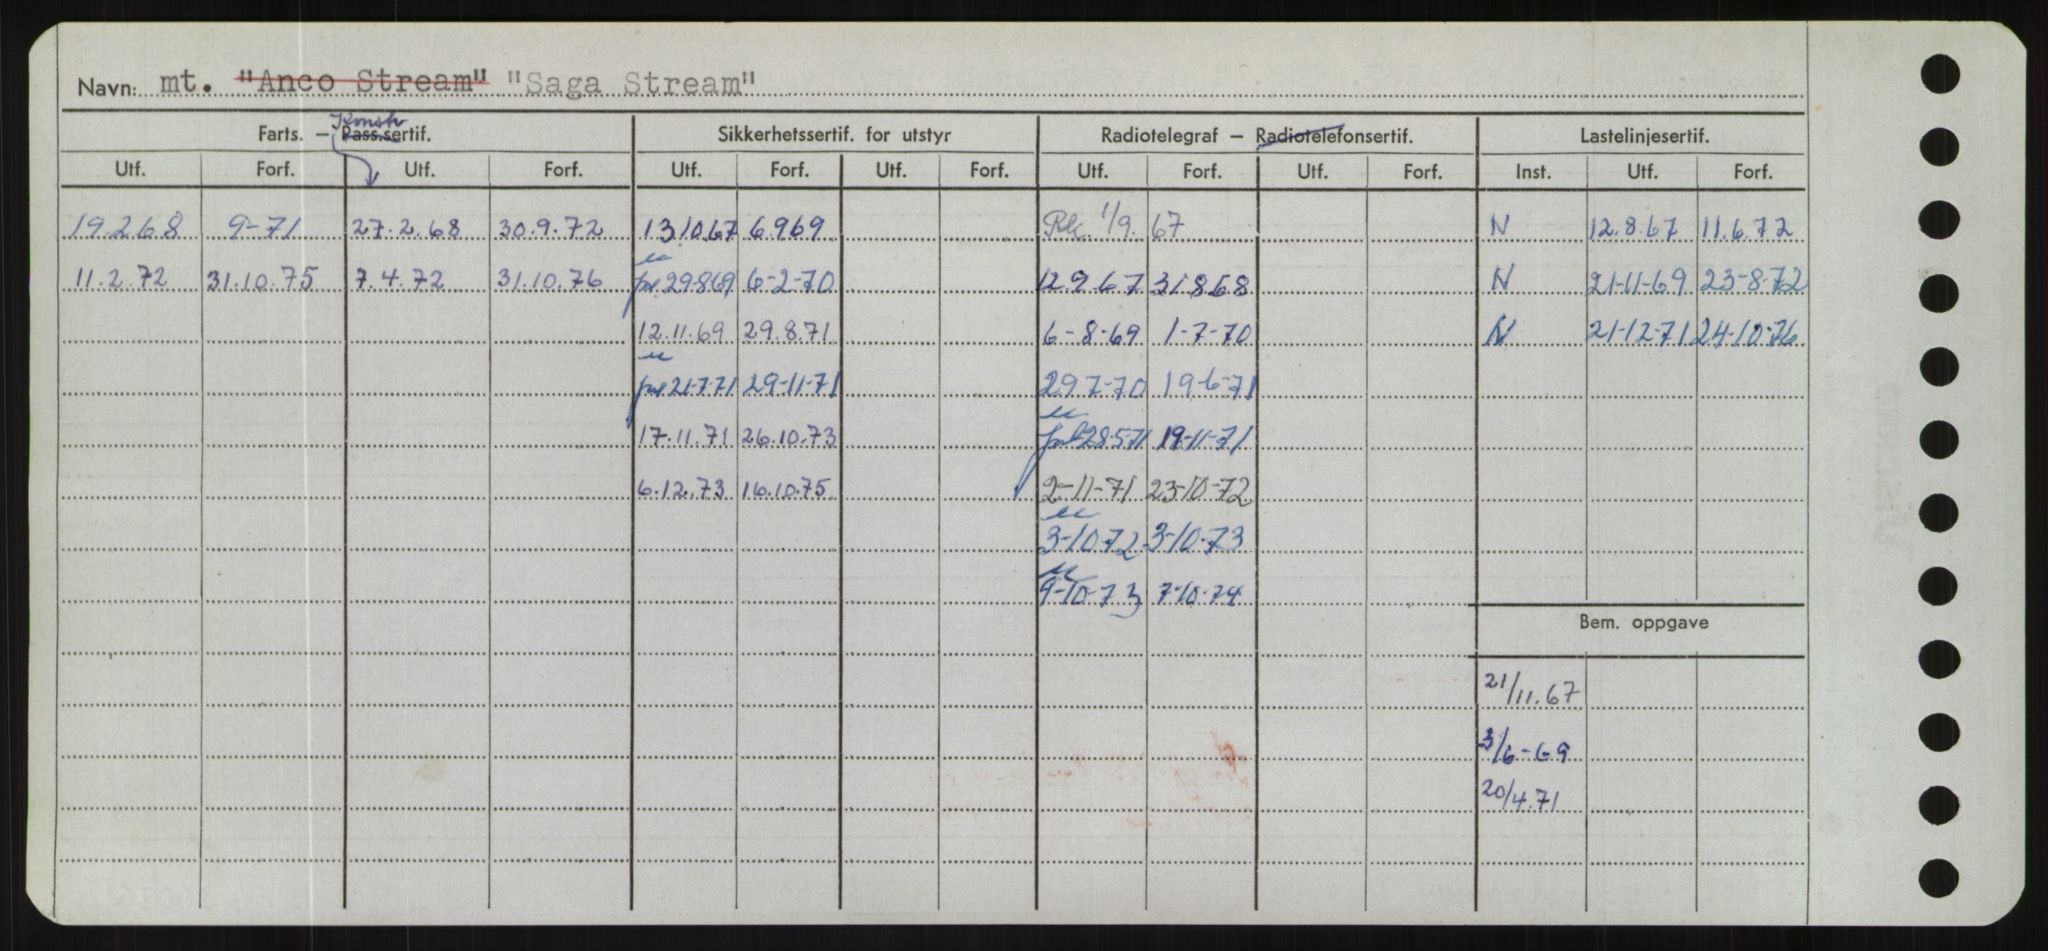 Navn: mt. "Anco Stream" "Saga Stream"
Farts. — Pass.sertif. Konstr Sikkerhetssertif. for utstyr Radiotelegraf — Radiotelefonsertif. Lastelinjesertif.
Utf. Forf. Utf. Forf. Utf. Forf. Utf. Forf. Utf. Forf. Utf. Forf. Inst. Utf. Forf.
19.2.68 9-71 27.2.68 30.9.72 13.10.67 6.9.69 1/9.67 N 12.8.67 11.6.72
11.2.72 31.10.75 7.4.72 31.10.76 29.8.69 6-2-70 12.9.67 31.8.68 N 21-11-69 23-8-72
12.11.69 29.8.71 6-8-69 1-7-70 N 21-12-71 24-10-76
21-7-71 29-11-71 29.7-70 19-6-71
17.11.71 26.10.73 28.5.71 19-11-71
6.12.73 16.10.75 2-11-71 23-10-72
3-10-72 3-10-73
9-10-73 7-10-74
Bem. oppgave
21/11.67
3/6-69
20/4.71